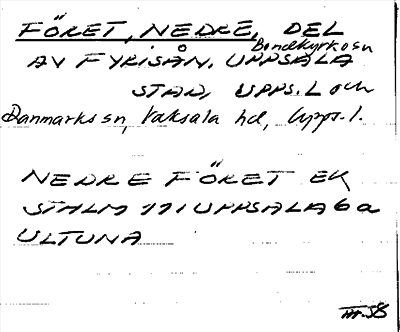 FÖRET, NEDRE, DEL
Bondkyrko sn
AV FYRISÅN, UPPSALA
STAD, UPPS. L och
Danmarks sn, Vaksala hd, Upps. l.
NEDRE FÖRET EK
STHLM 111 UPPSALA 6 a
ULTUNA